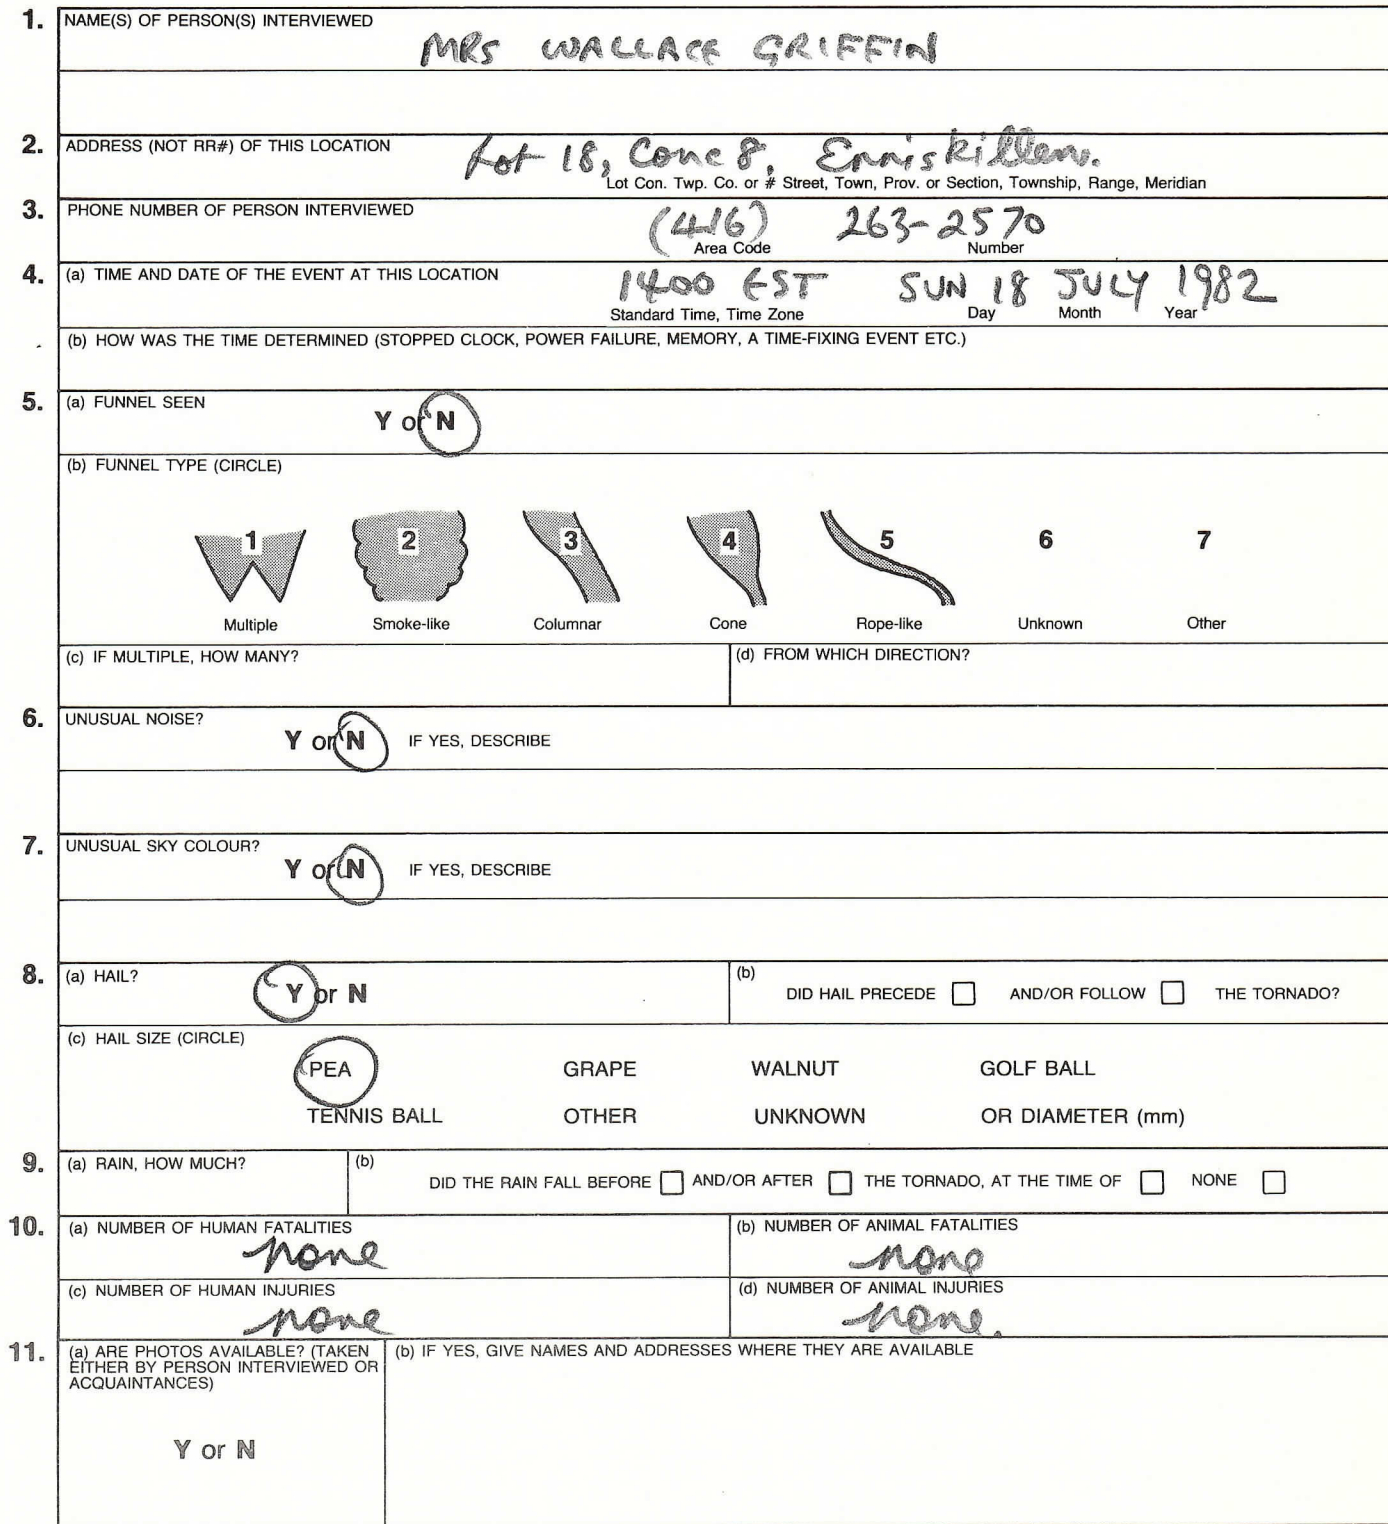 1. NAME(S) OF PERSON(S) INTERVIEWED
MRS WALLACE GRIFFIN
2. ADDRESS (NOT RR#) OF THIS LOCATION Lot 18, Conc 8, Enniskillen.
Lot Con. Twp. Co. or # Street, Town, Prov. or Section, Township, Range, Meridian
3. PHONE NUMBER OF PERSON INTERVIEWED (416) 263-2570
Area Code Number
4. (a) TIME AND DATE OF THE EVENT AT THIS LOCATION 1400 EST SUN 18 JULY 1982
Standard Time, Time Zone Day Month Year
(b) HOW WAS THE TIME DETERMINED (STOPPED CLOCK, POWER FAILURE, MEMORY, A TIME-FIXING EVENT ETC.)
5. (a) FUNNEL SEEN Y or N
(b) FUNNEL TYPE (CIRCLE)
1 2 3 4 5 6 7
Multiple Smoke-like Columnar Cone Rope-like Unknown Other
(c) IF MULTIPLE, HOW MANY? (d) FROM WHICH DIRECTION?
6. UNUSUAL NOISE?
Y or N IF YES, DESCRIBE
7. UNUSUAL SKY COLOUR?
Y or N IF YES, DESCRIBE
8. (a) HAIL? Y or N (b) DID HAIL PRECEDE AND/OR FOLLOW THE TORNADO?
(c) HAIL SIZE (CIRCLE)
PEA GRAPE WALNUT GOLF BALL
TENNIS BALL OTHER UNKNOWN OR DIAMETER (mm)
9. (a) RAIN, HOW MUCH? (b) DID THE RAIN FALL BEFORE AND/OR AFTER THE TORNADO, AT THE TIME OF NONE
10. (a) NUMBER OF HUMAN FATALITIES (b) NUMBER OF ANIMAL FATALITIES
none none
(c) NUMBER OF HUMAN INJURIES (d) NUMBER OF ANIMAL INJURIES
none none.
11. (a) ARE PHOTOS AVAILABLE? (TAKEN (b) IF YES, GIVE NAMES AND ADDRESSES WHERE THEY ARE AVAILABLE
EITHER BY PERSON INTERVIEWED OR
ACQUAINTANCES)
Y or N